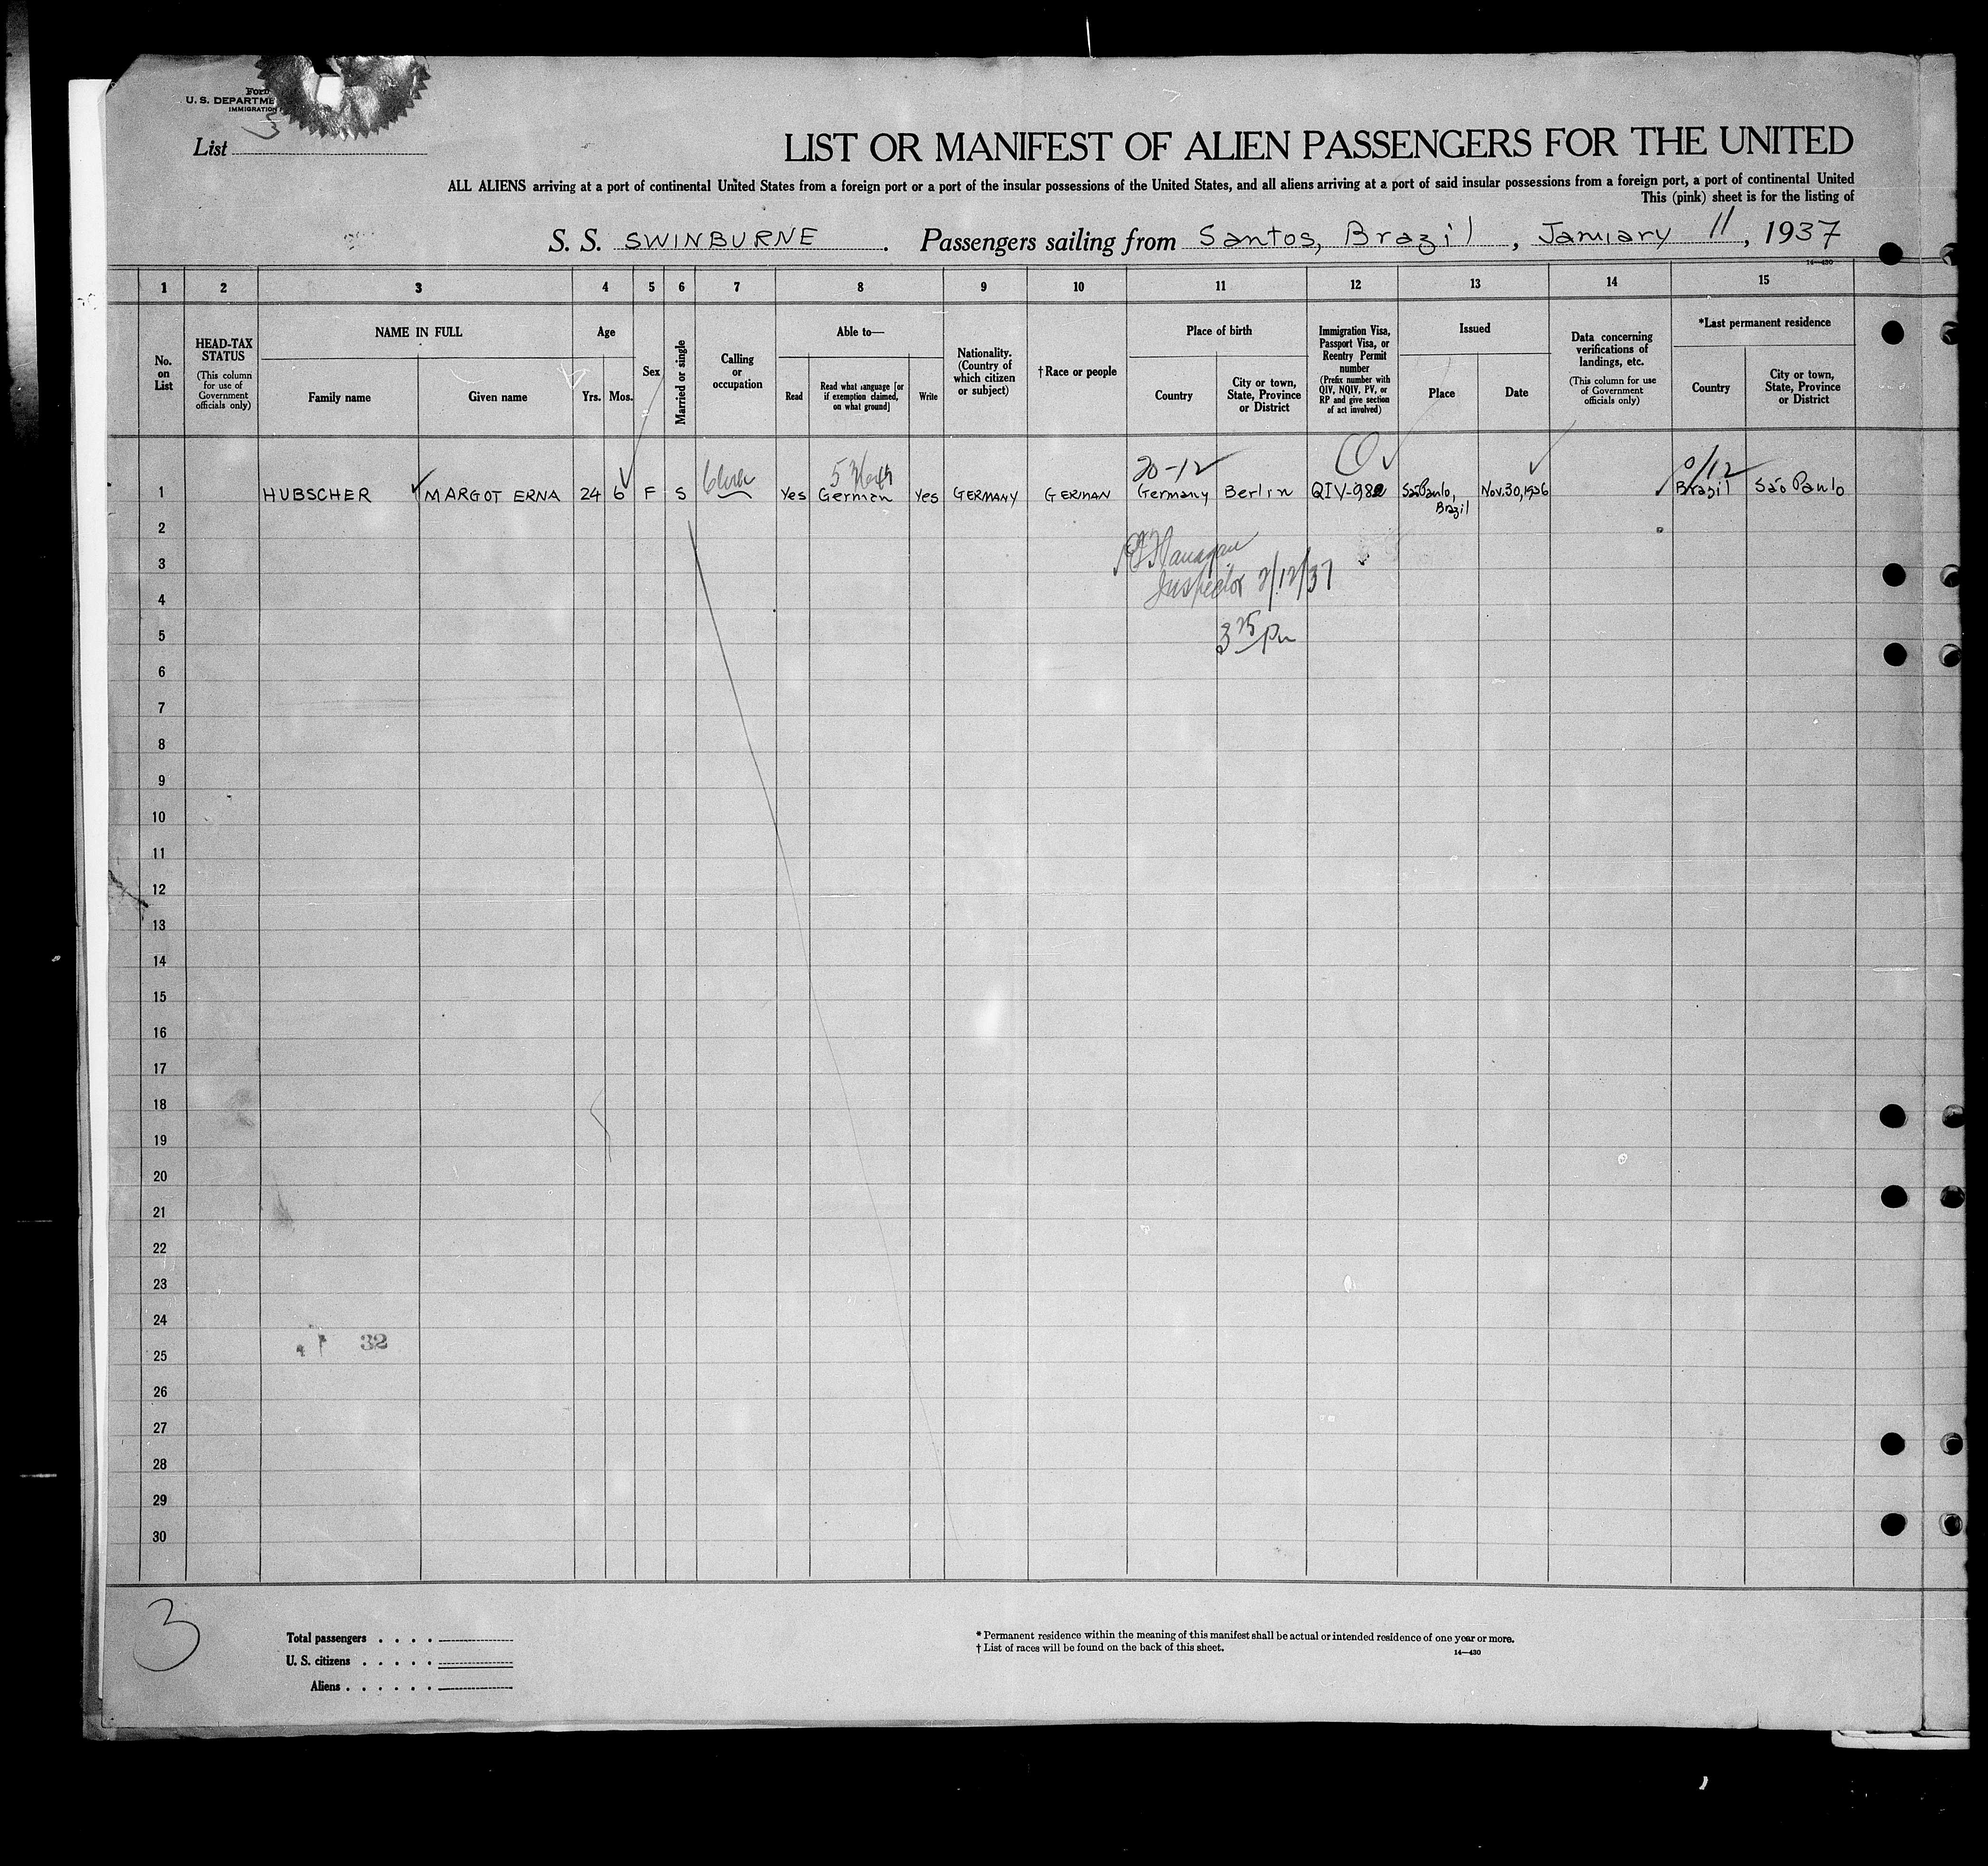 Form
U. S. DEPARTME
IMMIGRATION
List
LIST OR MANIFEST OF ALIEN PASSENGERS FOR THE UNITED
ALL ALIENS arriving at a port of continental United States from a foreign port or a port of the insular possessions of the United States, and all aliens arriving at a port of said insular possessions from a foreign port, a port of continental United
This (pink) sheet is for the listing of
S. S. SWINBURNE . Passengers sailing from Santos, Brazil , January 11 , 1937
14—430
1 2 3 4 5 6 7 8 9 10 11 12 13 14 15
No. on List
HEAD-TAX STATUS
(This column for use of Government officials only)
NAME IN FULL
Family name
Given name
Age
Yrs. Mos.
Sex
Married or single
Calling or occupation
Able to—
Read
Read what language [or if exemption claimed, on what ground]
Write
Nationality. (Country of which citizen or subject)
†Race or people
Place of birth
Country
City or town, State, Province or District
Immigration Visa, Passport Visa, or Reentry Permit number
(Prefix number with QIV, NQIV, PV, or RP and give section of act involved)
Issued
Place
Date
Data concerning verifications of landings, etc.
(This column for use of Government officials only)
*Last permanent residence
Country
City or town, State, Province or District
20-12
1 HUBSCHER MARGOT ERNA 24 6 F S Yes German Yes GERMANY GERMAN Germany Berlin São Paulo, Brazil Nov.30,1936 Brazil São Paulo
2
Inspector 2/12/37
3
4
3 25 Pm
5
6
7
8
9
10
11
12
13
14
15
16
17
18
19
20
21
22
23
24
25
26
27
28
29
30
32
3
Total passengers . . . .
U. S. citizens . . . . .
Aliens . . . . . .
* Permanent residence within the meaning of this manifest shall be actual or intended residence of one year or more.
† List of races will be found on the back of this sheet.
14—430